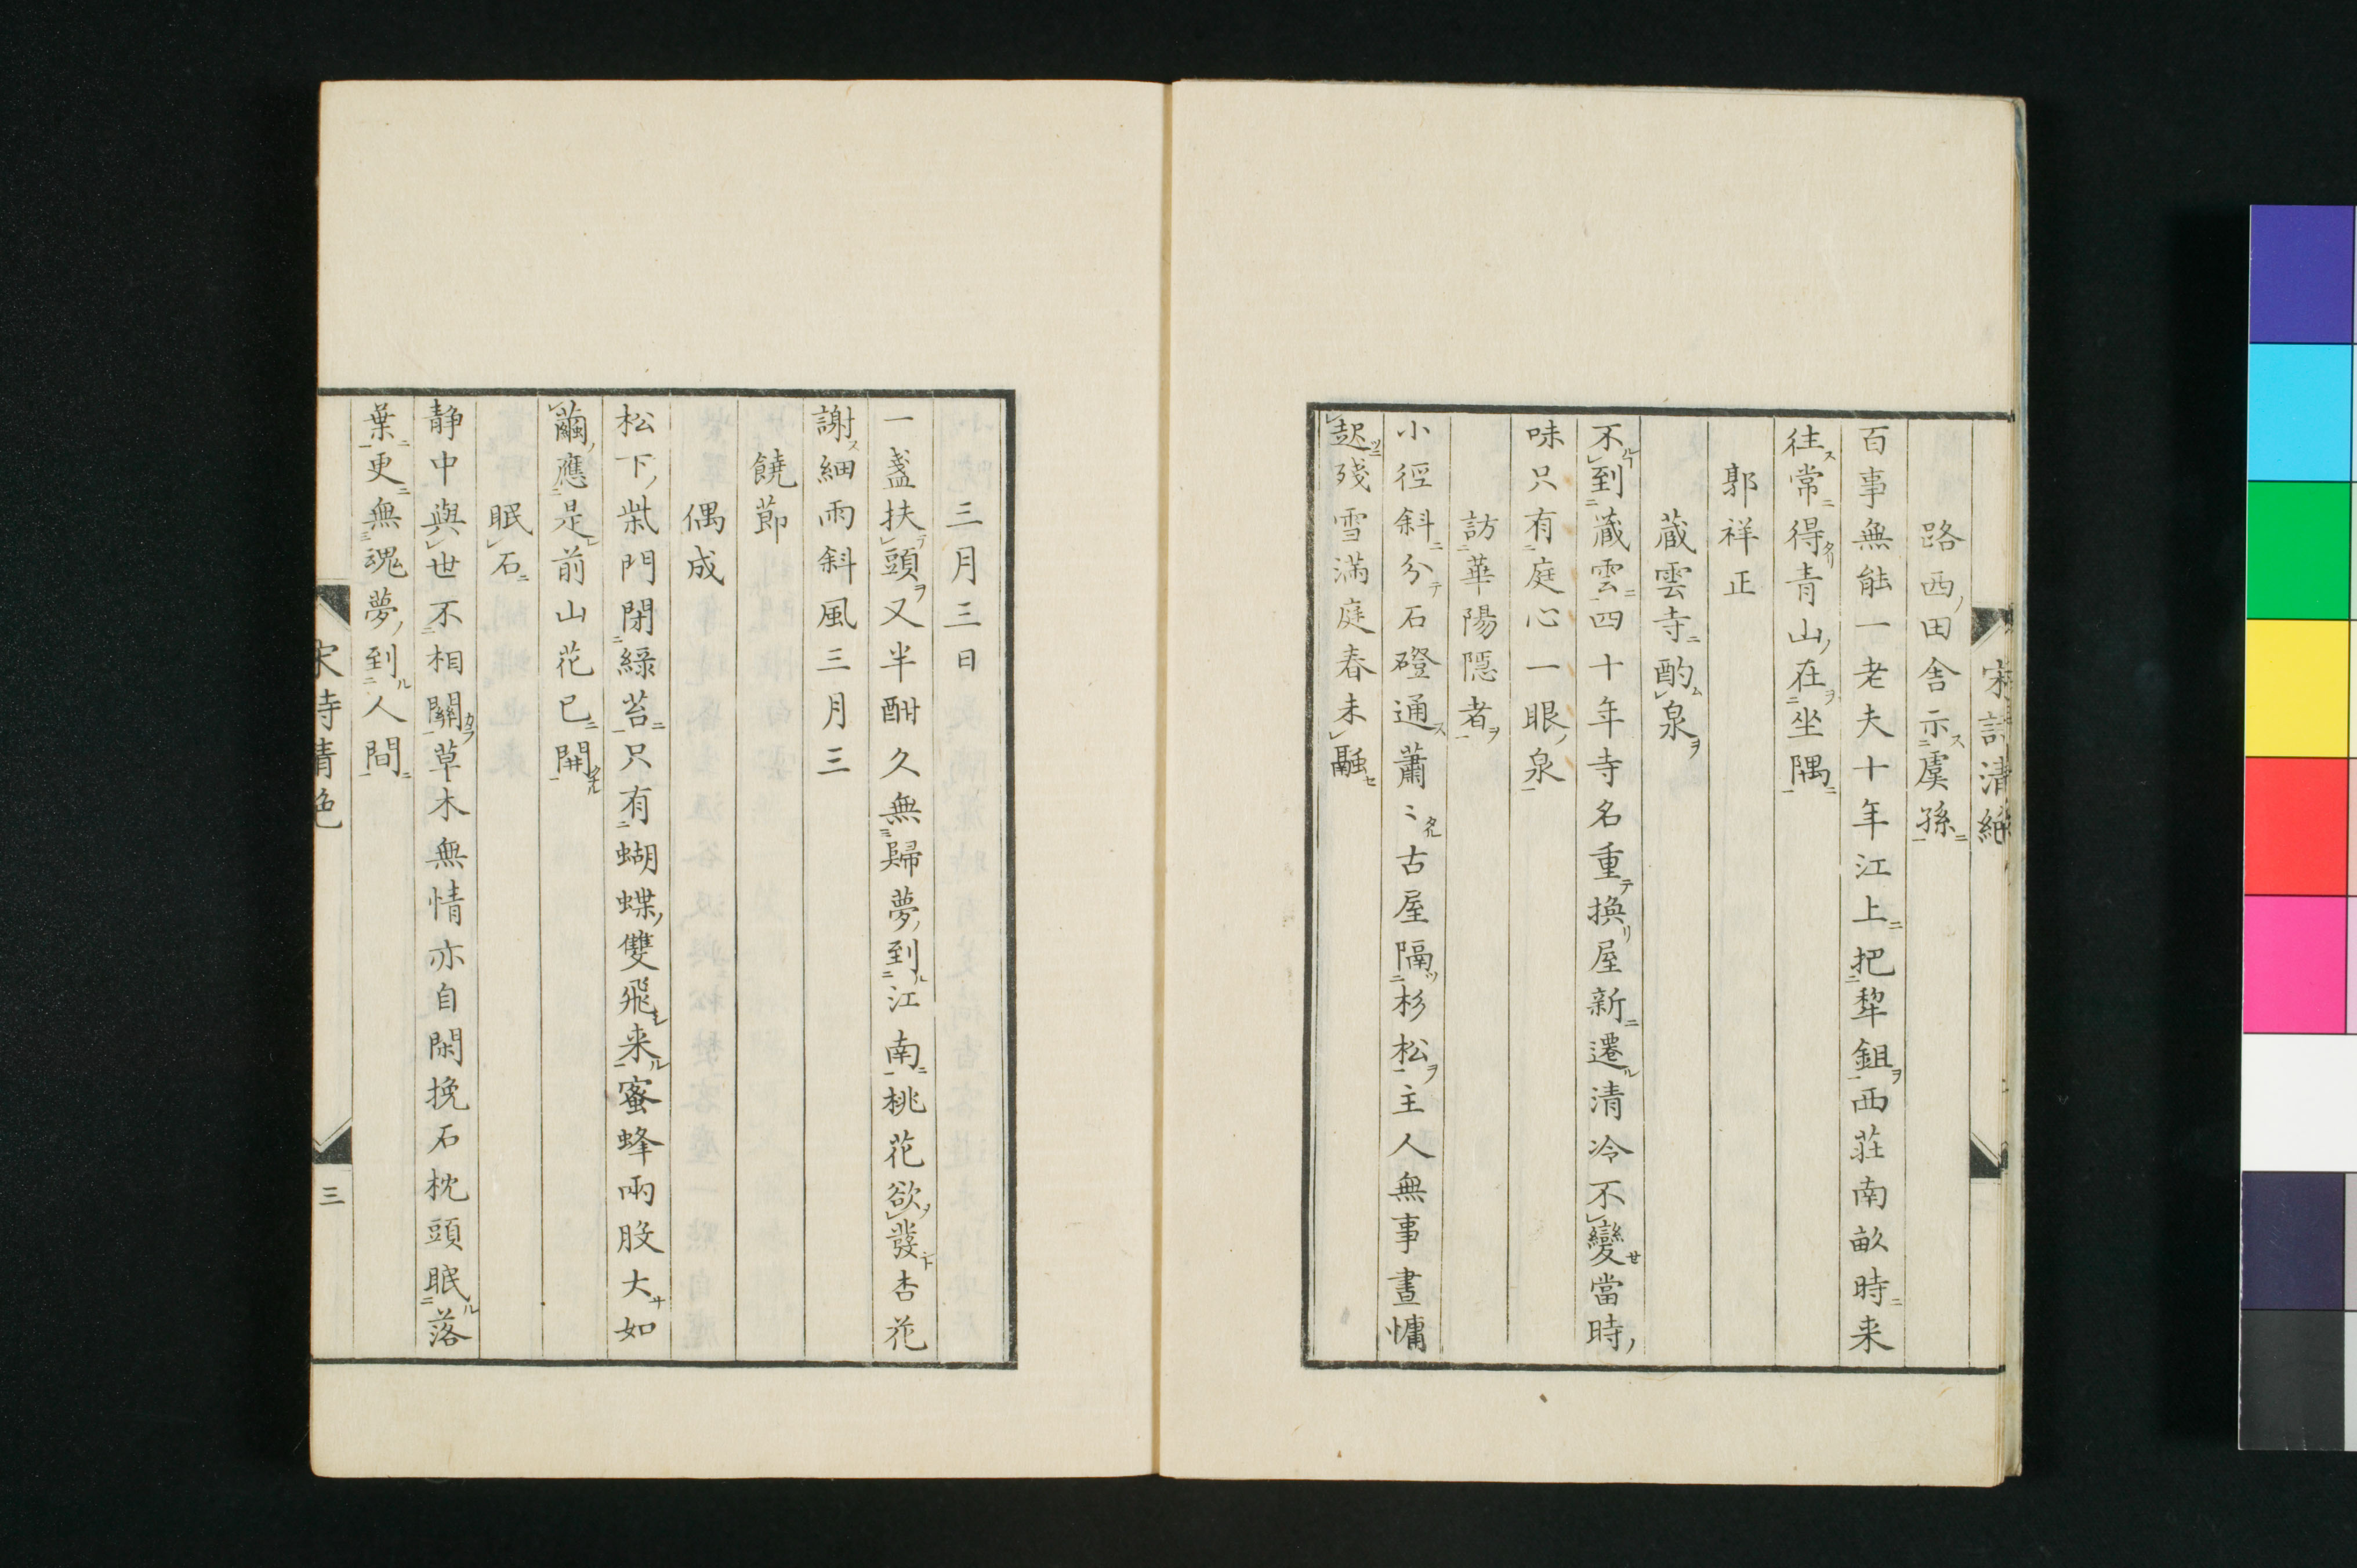 宋詩清絶
路西田舎示虞孫
百事無能一老夫十年江上把犂鉏西荘南畝時来
往常得青山在坐隅
郭祥正
蔵雲寺酌泉
不到蔵雲四十年寺名重換屋新遷清冷不變當時
味只有庭心一眼泉
訪華陽隠者
小徑斜分石磴通蕭〻古屋隔杉松主人無事晝慵
起殘雪満庭春未融
三月三日
一盞扶頭又半酣久無歸夢到江南桃花欲發杏花
謝細雨斜風三月三
饒莭
偶成
松下柴門閉緑苔只有蝴蝶雙飛来蜜蜂兩股大如
繭應是前山花已開
眠石
静中與世不相關草木無情亦自閑挽石枕頭眠落
葉更無魂夢到人間
三